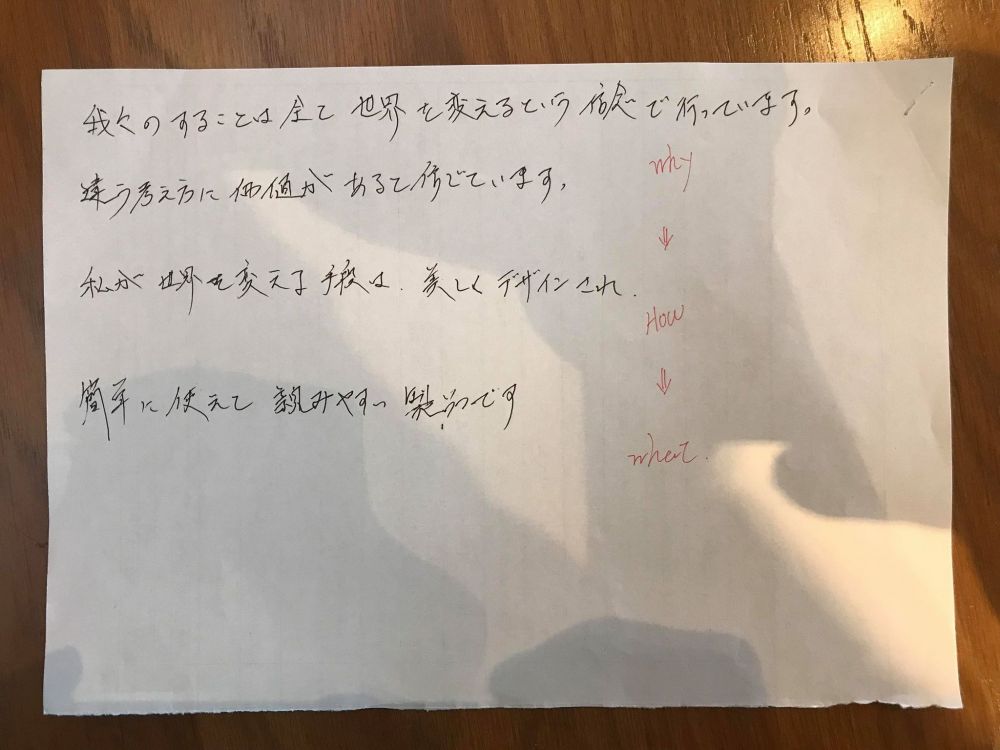 我々のすることは全て 世界を変えるという信念で行っています。
why
違う考え方に価値があると信じています。
⇓
私が世界を変える手段は、美しくデザインされ、
How
⇓
簡単に使えて 親みやすい 製品です
what.